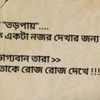 "তড়পায়"....
এক নজর দেখার জন্য
ভাগ্যবান তারা >>
তাকে রোজ রোজ দেখে !!!